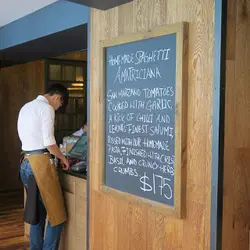 HOMEMADE SPAGHETTI
AMATRICIANA
SAN MARZANO TOMATOES
COOKED WITH GARLIC
A KICK OF CHILI AND
LEONI'S FINEST SALUMI
TOSSED WITH OUR HOMEMADE
PASTA FINISHED WITH
BASIL AND HERB
CRUMBS
$175